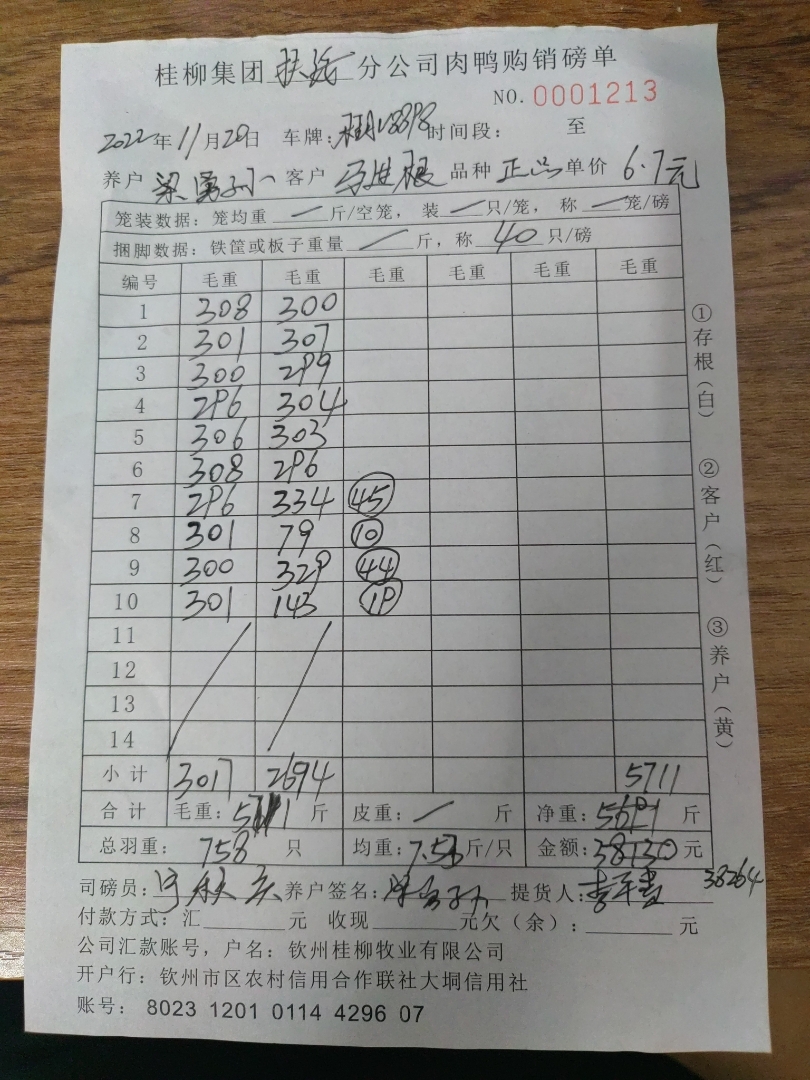 桂柳集团 分公司肉鸭购销磅单
NO. 0001213
2022年11月20日 车牌: 时间段: 至
养户 客户 品种 正品 单价 6.7元
笼装数据: 笼均重 一 斤/空笼, 装 一 只/笼, 称 一 笼/磅
捆脚数据: 铁筐或板子重量 一 斤, 称 40 只/磅
编号 毛重 毛重 毛重 毛重 毛重 毛重
1 308 300
2 301 307
3 300 299
4 296 304
5 306 303
6 308 296
7 296 334 45
8 301 79 10
9 300 329 44
10 301 143 19
11
12
13
14
小计 3017 2694 5711
合计 毛重: 5711 斤 皮重: 一 斤 净重: 5691 斤
总羽重: 758 只 均重: 7.53 斤/只 金额: 38130 元
司磅员: 养户签名: 提货人: 38264
付款方式: 汇 元 收现 元欠(余): 元
公司汇款账号, 户名: 钦州桂柳牧业有限公司
开户行: 钦州市区农村信用合作联社大垌信用社
账号: 8023 1201 0114 4296 07
①存根(白)
②客户(红)
③养户(黄)